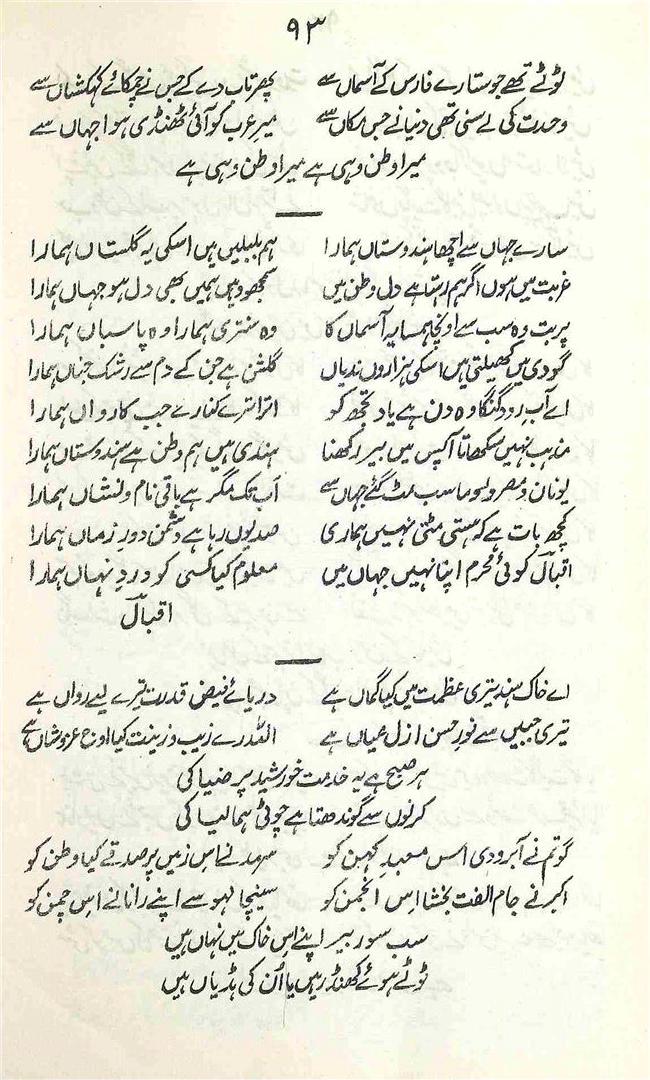 ۹۳
ٹوٹے تھے جو ستارے فارس کے آسماں سے پھر تاب دے کے جس نے چمکائے کہکشاں سے
وحدت کی لے سنی تھی دنیا نے جس مکاں سے میرِ عرب کو آئی ٹھنڈی ہوا جہاں سے
میرا وطن وہی ہے میرا وطن وہی ہے
سارے جہاں سے اچھا ہندوستاں ہمارا ہم بلبلیں ہیں اسکی یہ گلستاں ہمارا
غربت میں ہوں اگر ہم رہتا ہے دل وطن میں سمجھو وہیں ہمیں بھی دل ہو جہاں ہمارا
پربت وہ سب سے اونچا ہمسایہ آسماں کا وہ سنتری ہمارا وہ پاسباں ہمارا
گودی میں کھیلتی ہیں اسکی ہزاروں ندیاں گلشن ہے جن کے دم سے رشک جناں ہمارا
اے آب رود گنگا وہ دن ہے یاد تجھ کو اترا ترے کنارے جب کارواں ہمارا
مذہب نہیں سکھاتا آپس میں بیر رکھنا ہندی ہیں ہم وطن ہے ہندوستاں ہمارا
یونان و مصر و روما سب مٹ گئے جہاں سے اب تک مگر ہے باقی نام و نشاں ہمارا
کچھ بات ہے کہ ہستی مٹتی نہیں ہماری صدیوں رہا ہے دشمن دورِ زماں ہمارا
اقبالؔ کوئی محرم اپنا نہیں جہاں میں معلوم کیا کسی کو دردِ نہاں ہمارا
اقبالؔ
اے خاک ہند تیری عظمت میں کیا گماں ہے دریائے فیض قدرت تیرے لیے رواں ہے
تیری جبیں سے نورِ حسن ازل عیاں ہے اللہ رے زیب و زینت کیا اوج عز و شاں ہے
ہر صبح ہے یہ خدمت خورشید پر ضیا کی
کرنوں سے گوندھتا ہے چوٹی ہمالیا کی
گوتم نے آبرو دی اس معبد کہن کو سرمد نے اس زمیں پر صدقے کیا وطن کو
اکبر نے جام الفت بخشا اس انجمن کو سینچا لہو سے اپنے رانا نے اس چمن کو
سب سور بیر اپنے اس خاک میں نہاں ہیں
ٹوٹے ہوئے کھنڈر ہیں یا اُن کی ہڈیاں ہیں